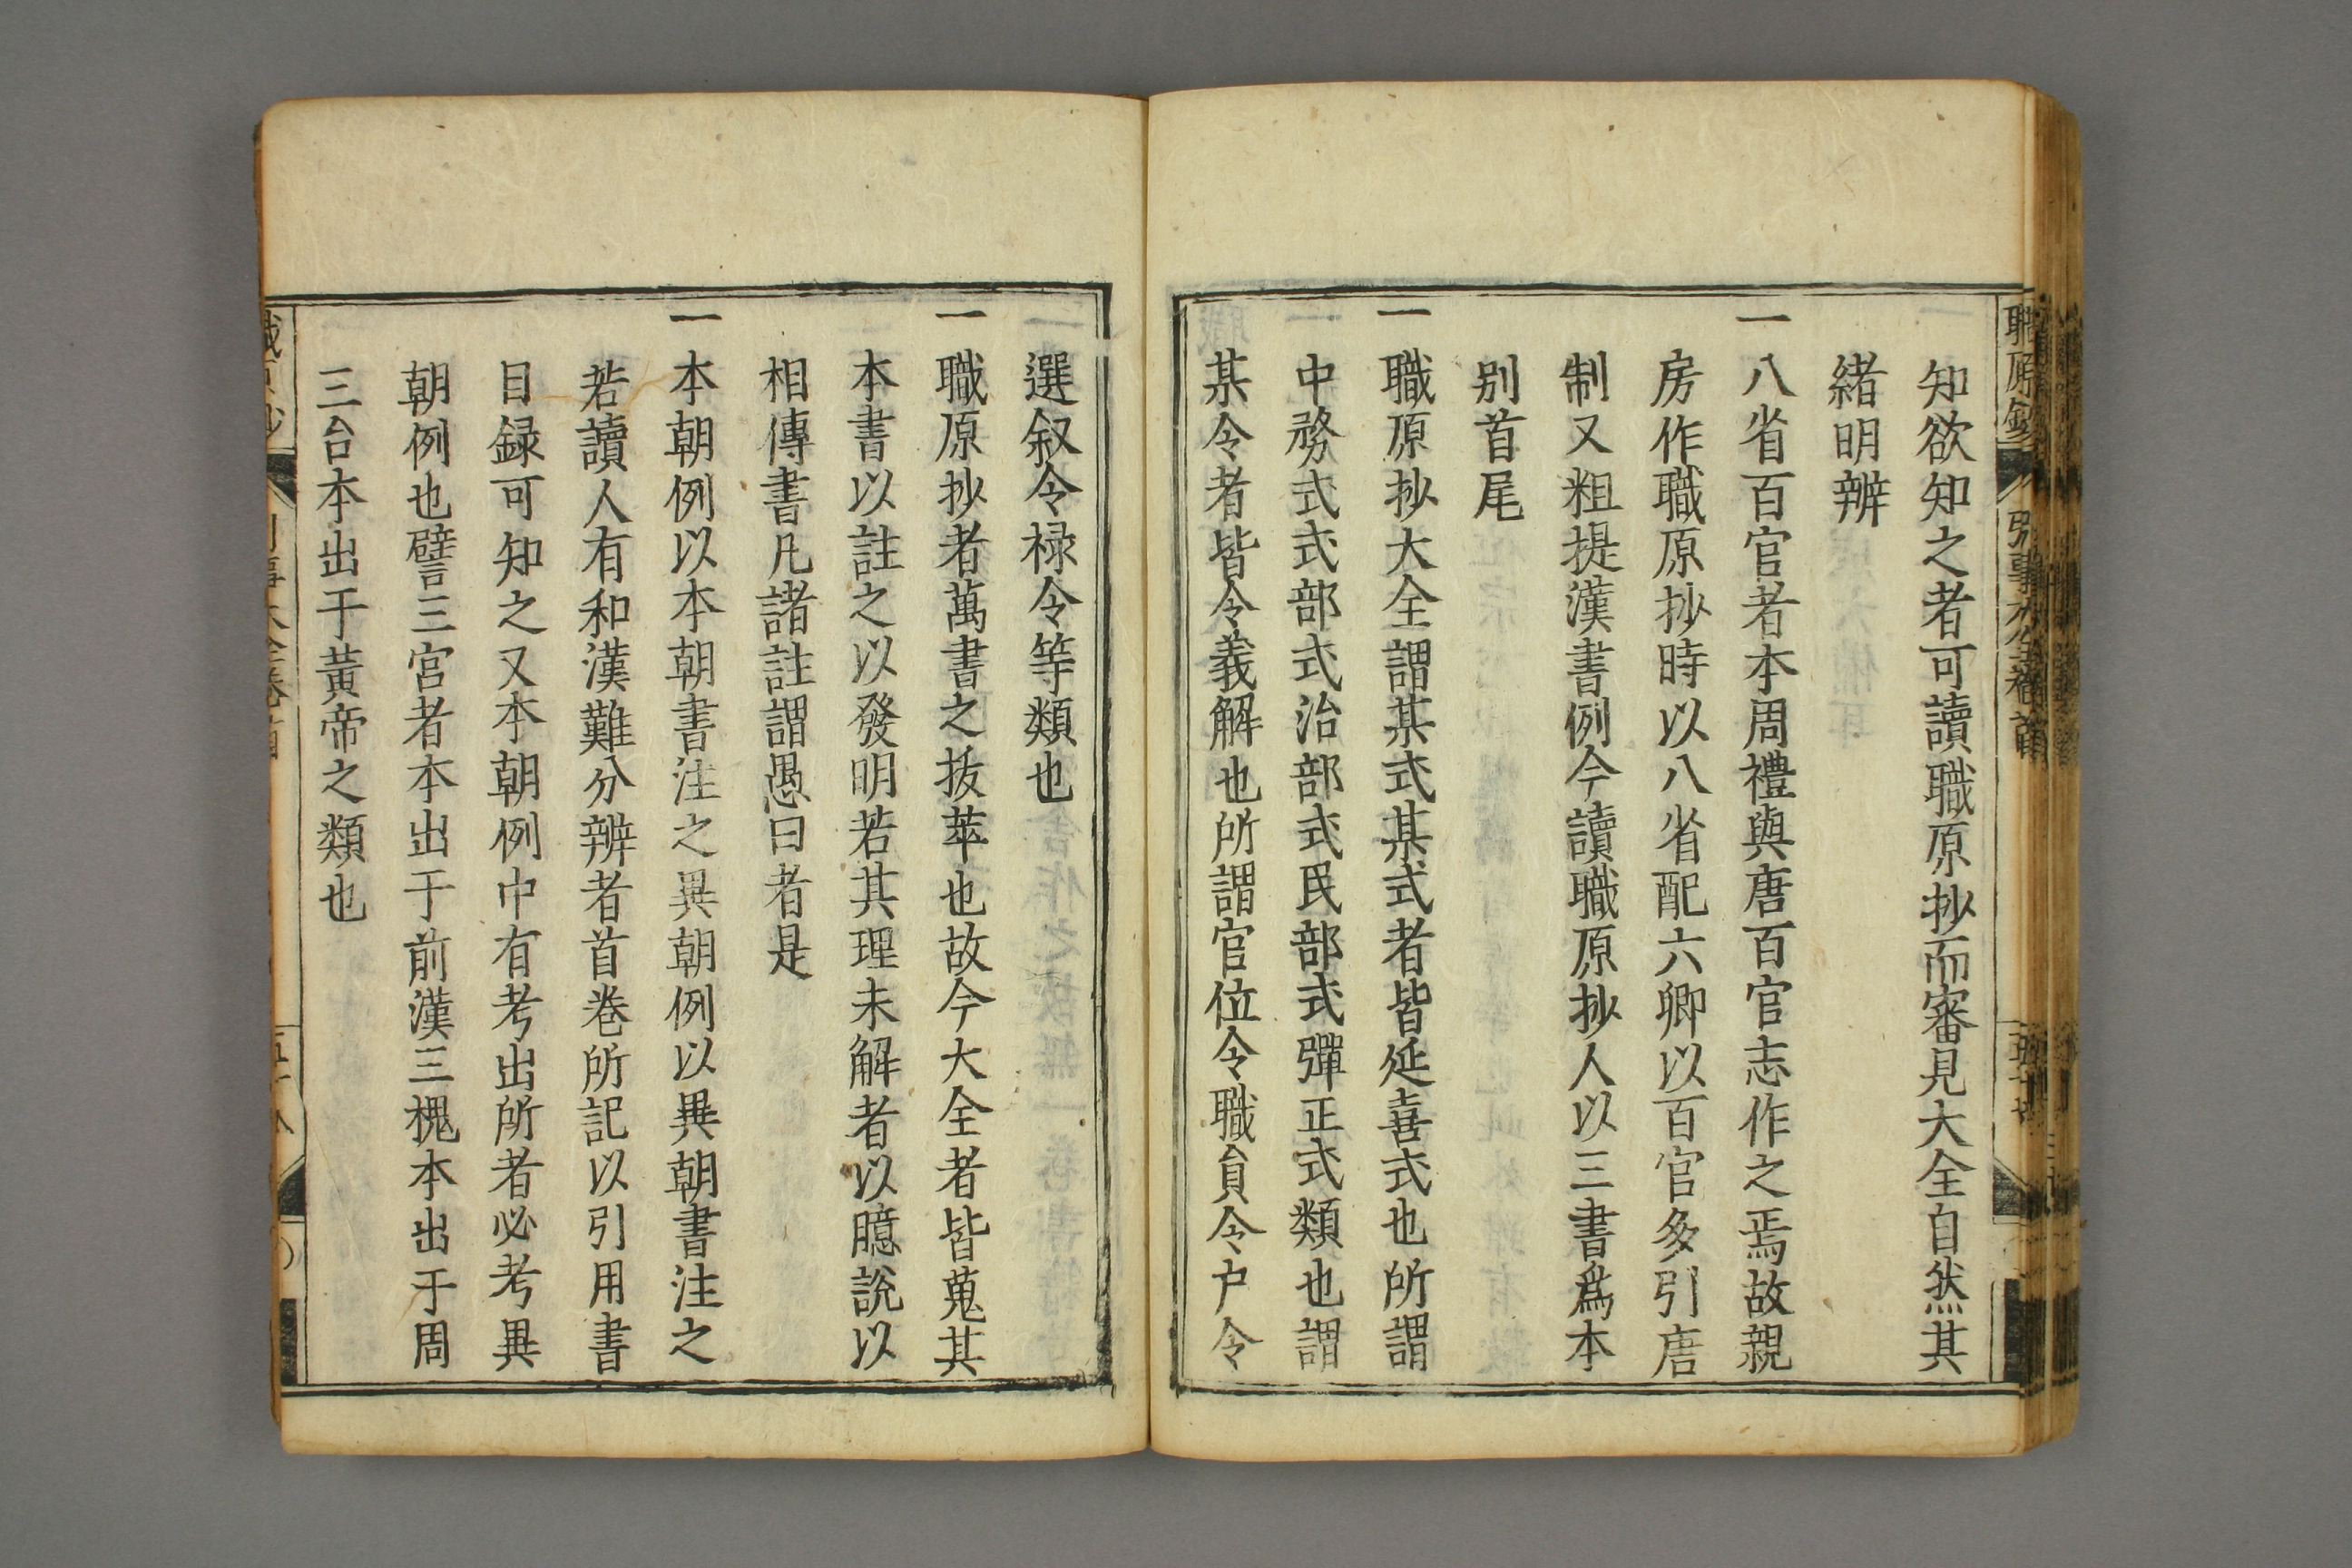 知欲知之者可讀職原抄而審見大全自然其
緒明辨
一八省百官者本周禮與唐百官志作之焉故親
房作職原抄時以八省配六卿以百官多引唐
制又粗提漢書例今讀職原抄人以三書爲本
別首尾
一職原抄大全謂某式某式者皆延喜式也所謂
中務式式部式治部式民部式彈正式類也謂
某令者皆令義解也所謂官位令職員令户令
選叙令禄令等類也
一職原抄者萬書之抜萃也故今大全者皆蒐其
本書以註之以發明若其理未解者以臆說以
相傳書凡諸註謂愚曰者是
一本朝例以本朝書注之異朝例以異朝書注之
若讀人有和漢難分辨者首巻所記以引用書
目録可知之又本朝例中有考出所者必考異
朝例也譬三宮者本出于前漢三槐本出于周
三台本出于黃帝之類也